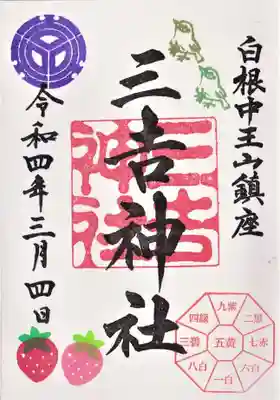 白根中王山鎮座
三吉神社
三吉神社
令和四年三月四日
九紫
四緑 二黒
三碧 五黄 七赤
八白 六白
一白